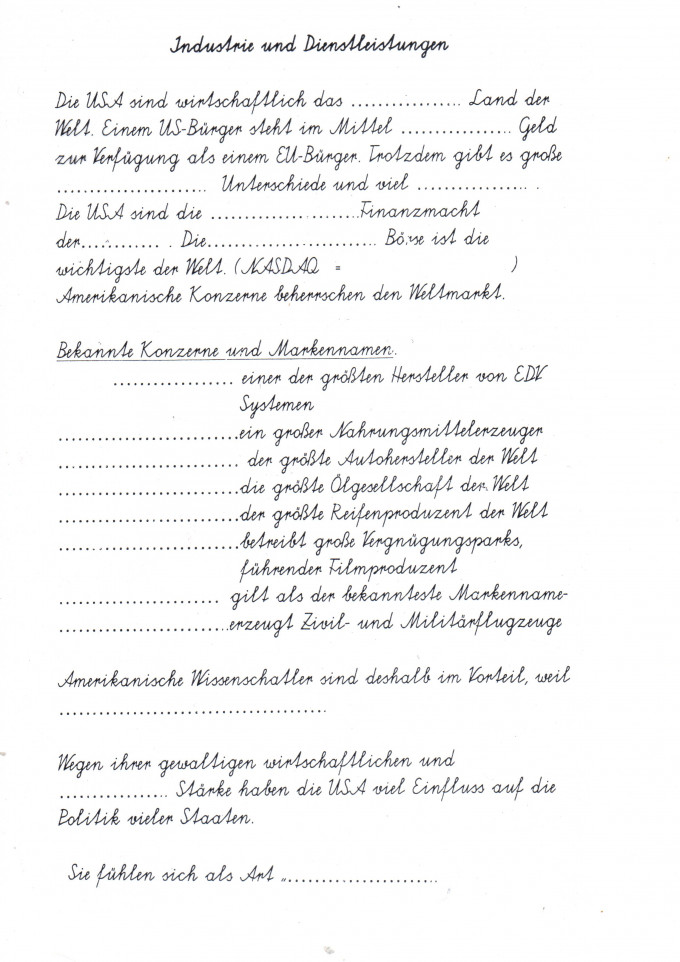 Industrie und Dienstleistungen
Die USA sind wirtschaftlich das ................. Land der
Welt. Einem US-Bürger steht im Mittel ................. Geld
zur Verfügung als einem EU-Bürger. Trotzdem gibt es große
....................... Unterschiede und viel ................. .
Die USA sind die .......................Finanzmacht
der............ . Die.......................... Börse ist die
wichtigste der Welt. (NASDAQ = )
Amerikanische Konzerne beherrschen den Weltmarkt.
Bekannte Konzerne und Markennamen.
.................. einer der größten Hersteller von EDV
Systemen
...........................ein großer Nahrungsmittelerzeuger
........................... der größte Autohersteller der Welt
...........................die größte Ölgesellschaft der Welt
...........................der größte Reifenproduzent der Welt
...........................betreibt große Vergnügungsparks,
führender Filmproduzent
........................ gilt als der bekannteste Markenname-
..........................erzeugt Zivil- und Militärflugzeuge
Amerikanische Wissenschatler sind deshalb im Vorteil, weil
........................................
Wegen ihrer gewaltigen wirtschaftlichen und
................ Stärke haben die USA viel Einfluss auf die
Politik vieler Staaten.
Sie fühlen sich als Art „.......................